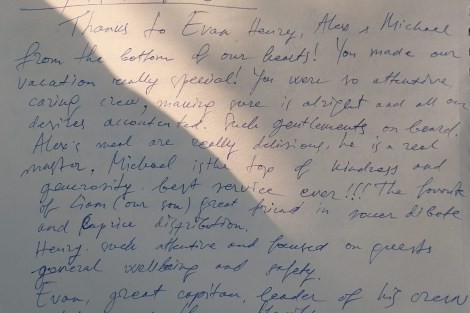 Thanks to Evan Henry, Alex & Michael
from the bottom of our hearts! You made our
vacation really special! You were so attentive
caring crew, making sure is alright and all our
desires accontented. Such gentlements on board.
Alex's meal are really delisious, he is a real
master. Michael is the top of kindness and
generosity. best service ever!!! The favorite
of Liam (our son) great friend in dibate
and Caprice distribution.
Henry. such attentive and focused on guests
general wellbeing and safety.
Evan, great capitan, leader of his crew